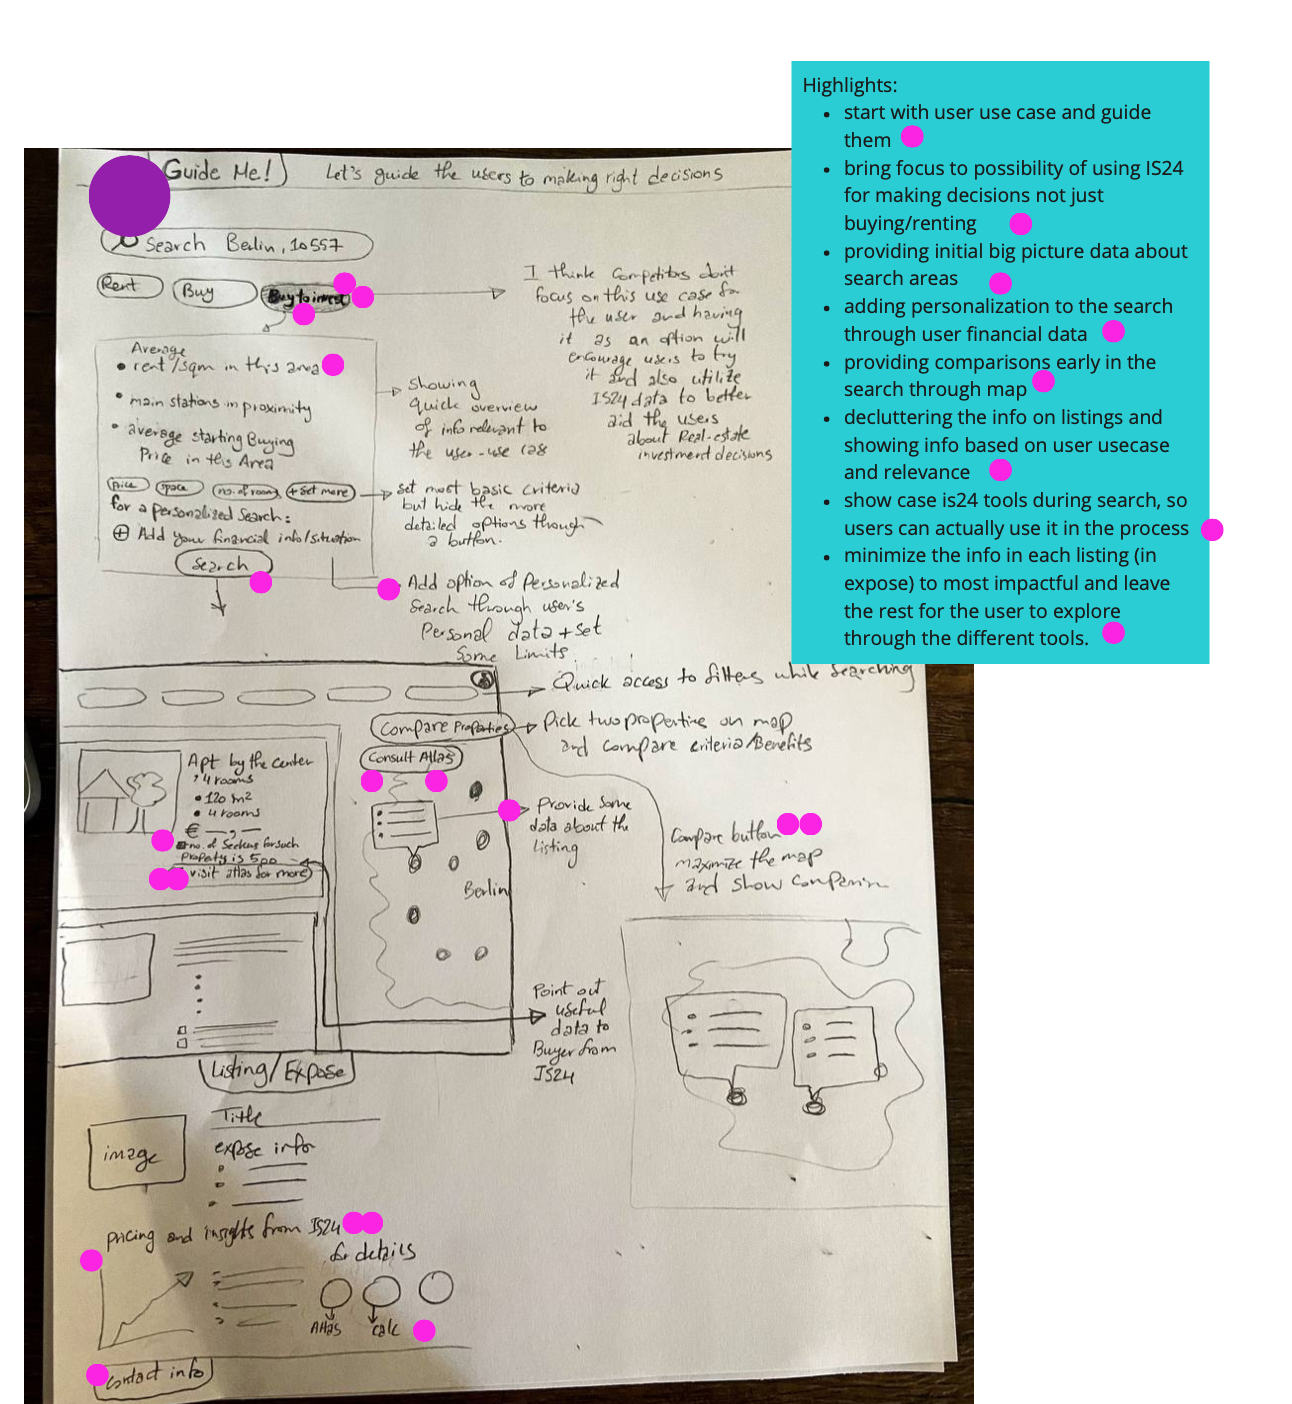 Highlights:
• start with user use case and guide
them
• bring focus to possibility of using IS24
for making decisions not just
buying/renting
• providing initial big picture data about
search areas
• adding personalization to the search
through user financial data
• providing comparisons early in the
search through map
• decluttering the info on listings and
showing info based on user usecase
and relevance
• show case is24 tools during search, so
users can actually use it in the process
• minimize the info in each listing (in
expose) to most impactful and leave
the rest for the user to explore
through the different tools.
Guide Me!
Let's guide the users to making right decisions
Search Berlin, 10557
Rent
Buy
Buy to invest
I think Competitors don't
focus on this use case for
the user and having
it as an option will
encourage users to try
it and also utilize
IS24 data to better
aid the users
about Real-estate
investment decisions
Average
• rent/sqm in this area
• main stations in proximity
• average starting Buying
Price in this Area
showing
quick overview
of info relevant to
the user-use cas
Price
space
no. of rooms
+ Set more
set most basic criteria
but hide the more
detailed options through
a button.
for a personalized Search:
⊕ Add your financial info/situation
Search
Add option of Personalized
Search through user's
Personal data + set
Some Limits.
Quick access to filters while searching
Compare Properties
Pick two properties on map
and compare criteria/Benefits
Consult Atlas
Apt by the center
• 4 rooms
• 120 m²
• 4 rooms
€
no. of Seekers for such
Property is 500
visit atlas for more
Provide Some
data about the
Listing
Compare button
maximize the map
and show Comparison
Berlin
Point out
useful
data to
Buyer from
IS24
Listing/Expose
Title
image
expose info
Pricing and insights from IS24
for details
Atlas
calc
Contact info